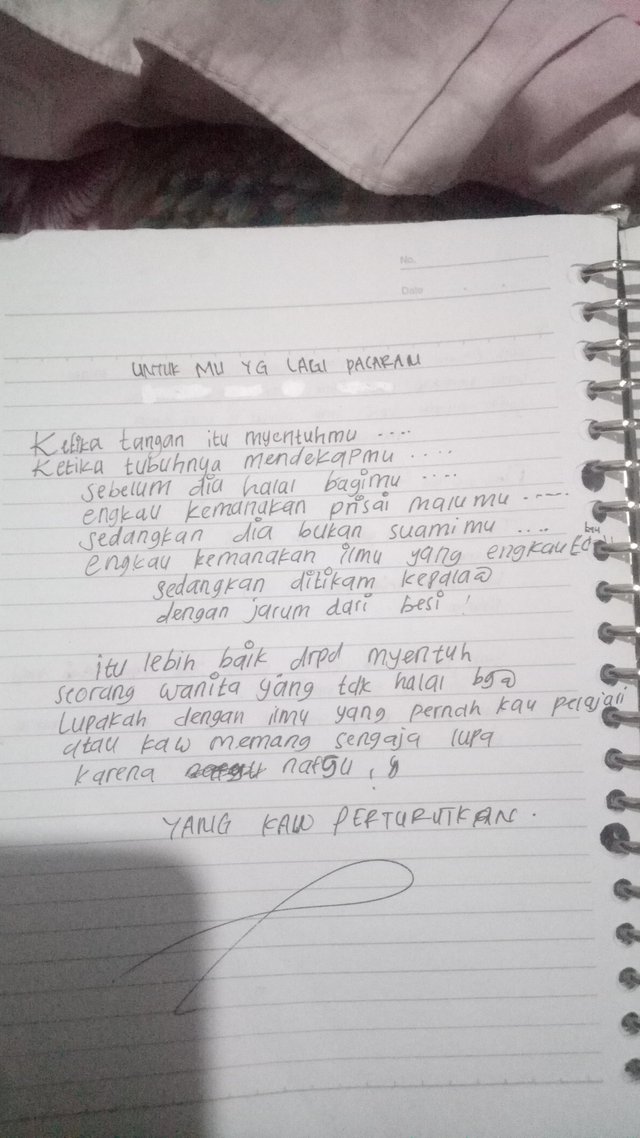 No.
Date
UNTUK MU YG LAGI PACARAN
Ketika tangan itu myentuhmu ....
Ketika tubuhnya mendekapmu ....
sebelum dia halal bagimu ....
engkau kemanakan prisai malumu ....
sedangkan dia bukan suamimu ....
engkau kemanakan ilmu yang engkau
sedangkan ditikam kepala@
dengan jarum dari besi !
itu lebih baik drpd myentuh
seorang wanita yang tdk halal bg@
Lupakah dengan ilmu yang pernah kau pelajari
atau kaw memang sengaja lupa
karena nafsu
YANG KAW PERTURUTKAN.